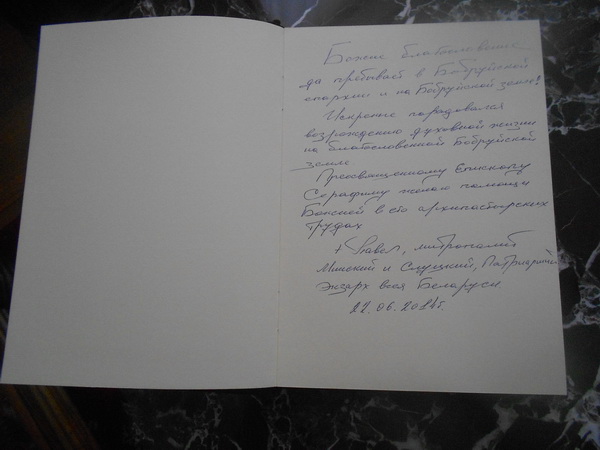 Божие благословение
да пребывает в Бобруйской
епархии и на Бобруйской земле!
Искренне порадовался
возрождению духовной жизни
на благословенной Бобруйской
земле.
Преосвященному Епископу
Серафиму желаю помощи
Божией в его архипастырских
трудах
+ Павел, митрополит
Минский и Слуцкий, Патриарший
Экзарх всея Беларуси
22.06.2014г.